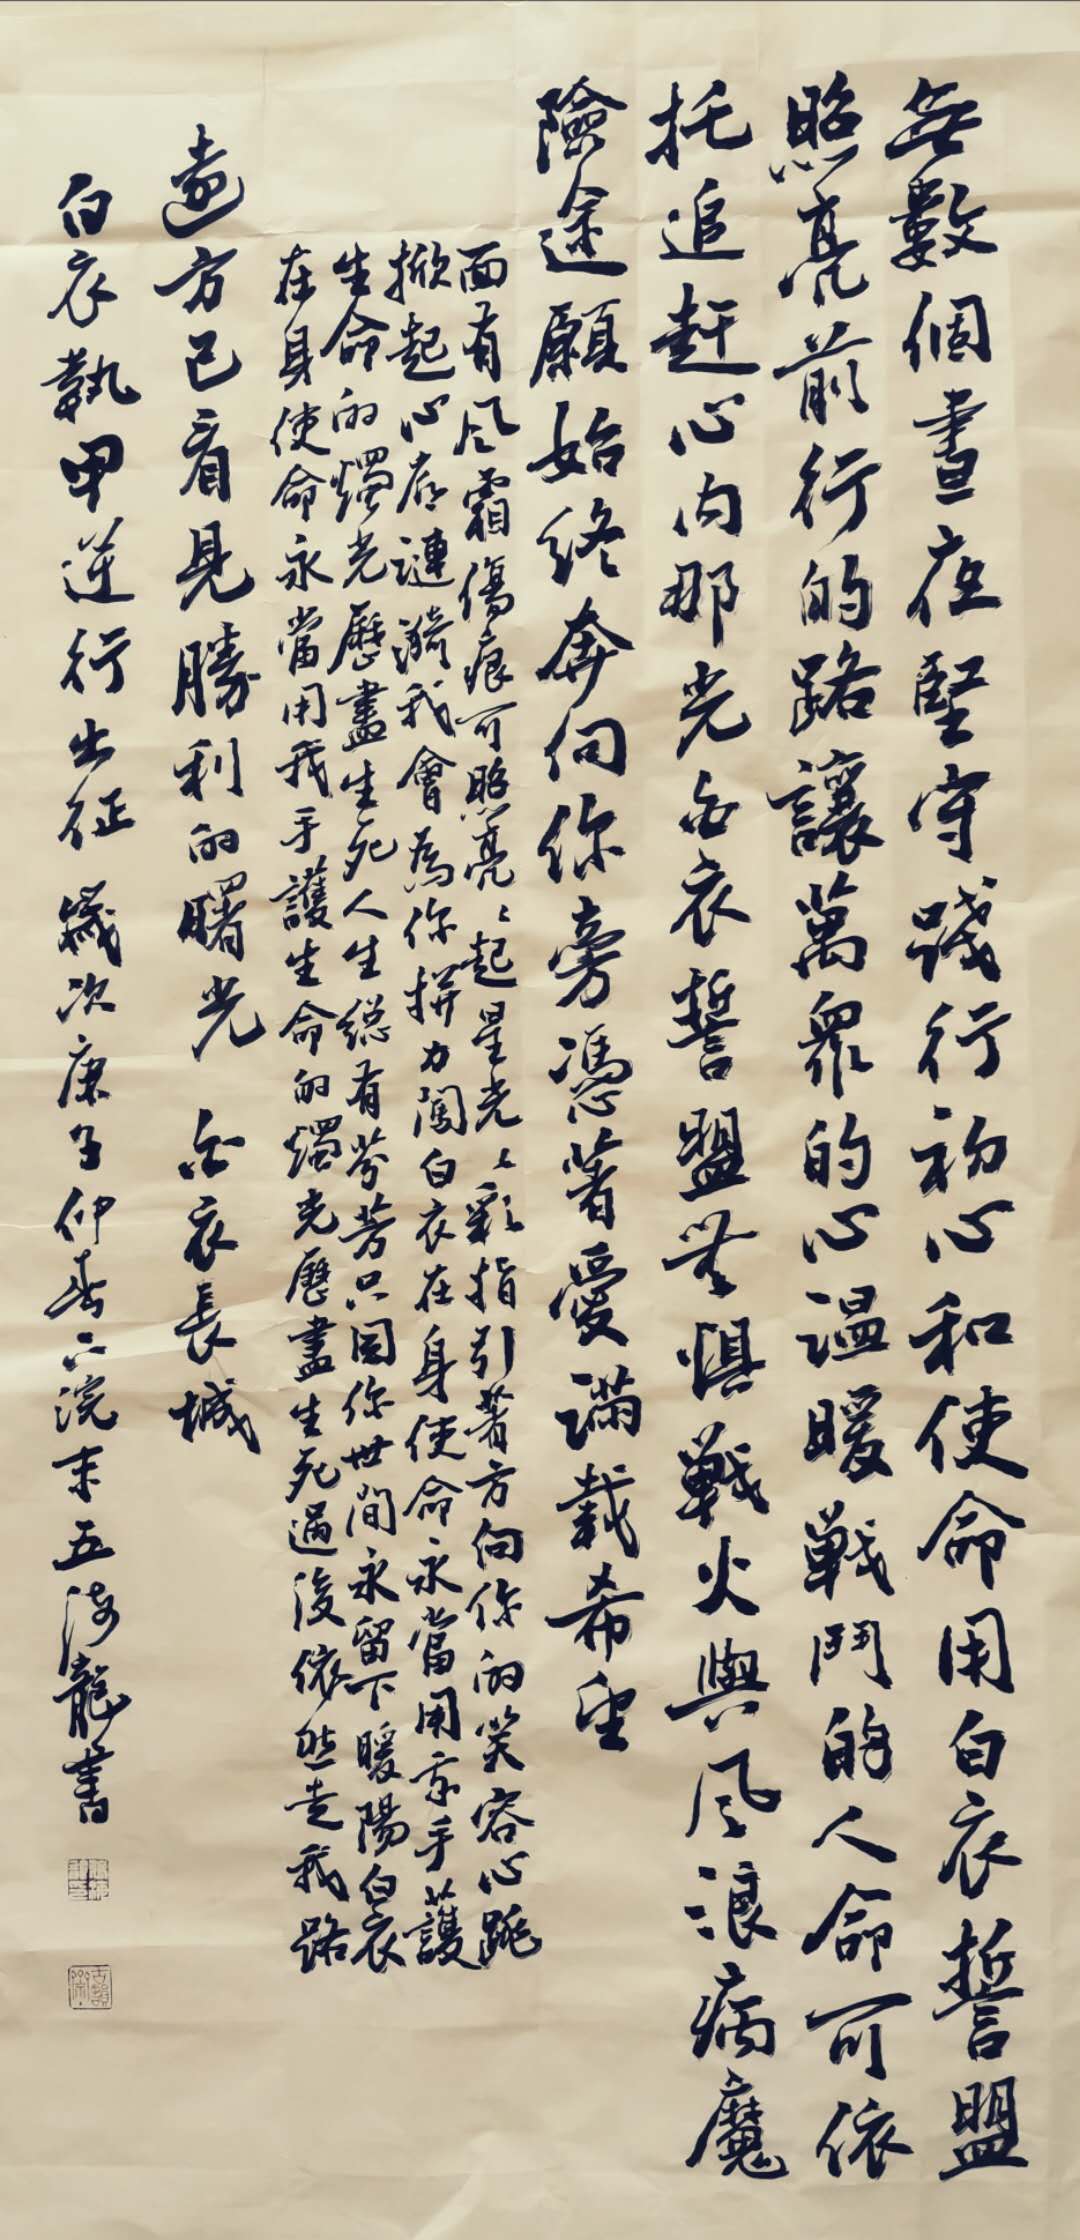 無數個晝夜堅守踐行初心和使命用白衣誓盟
照亮前行的路讓萬眾的心溫暖戰鬥的人命可依
托追赶心内那光白衣誓盟無惧戰火與风浪病魔
險途願始終奔向你旁憑著愛滿載希望
面有风霜傷痕可照亮亮起星光光彩指引著方向你的笑容心跳
掀起心底漣漪我會為你拼力闖白衣在身使命永當用我手護
生命的燭光歷盡生死人生總有芬芳只因你世間永留下暖陽白衣
在身使命永當用我手護生命的燭光歷盡生死過後依然走我路
遠方已看見勝利的曙光 白衣長城
白衣執甲逆行出征 歲次庚子仲春六浣末五海龍書